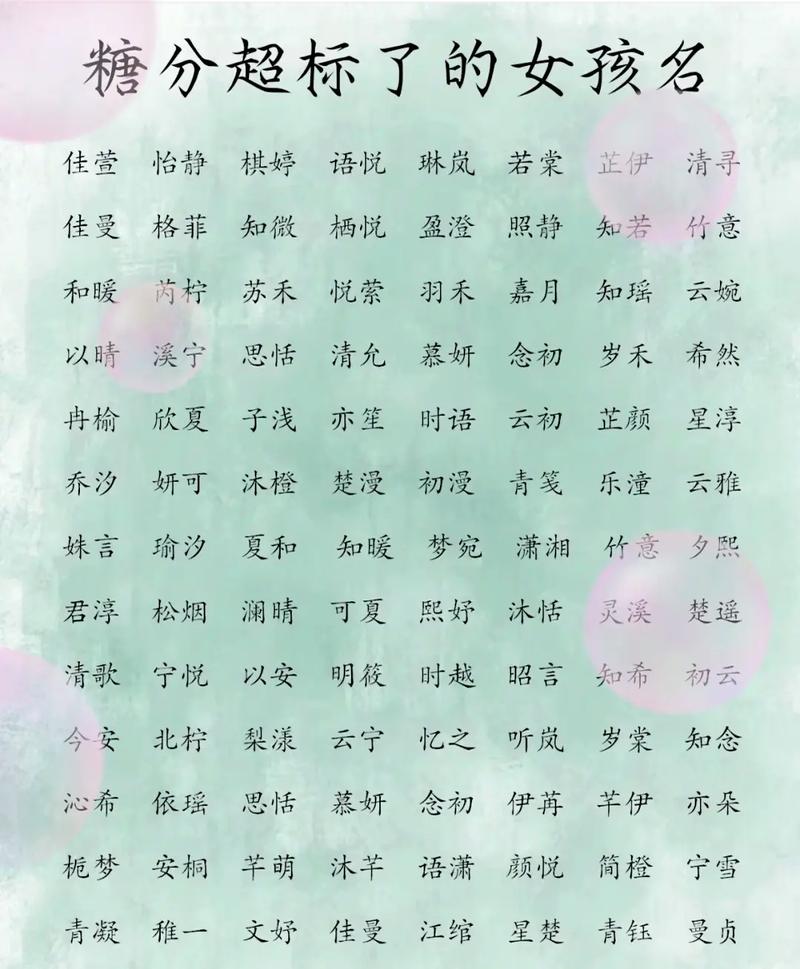 糖分超标了的女孩名
佳萱 怡静 棋婷 语悦 琳岚 若棠 芷伊 清寻
佳曼 格菲 知微 栖悦 盈澄 照静 知若 竹意
和暖 芮柠 苏禾 悦萦 羽禾 嘉月 知瑶 云婉
以晴 溪宁 思恬 清允 慕妍 念初 岁禾 希然
冉榆 欣夏 子浅 亦笙 时语 云初 芷颜 星淳
乔汐 妍可 沐橙 楚漫 初漫 青笺 乐潼 云雅
姝言 瑜汐 夏和 知暖 梦宛 潇湘 竹意 夕熙
君淳 松烟 澜晴 可夏 熙妤 沐恬 灵溪 楚遥
清歌 宁悦 以安 明筱 时越 昭言 知希 初云
今安 北柠 梨漾 云宁 忆之 听岚 岁棠 知念
沁希 依瑶 思恬 慕妍 念初 伊苒 芊伊 亦朵
栀梦 安桐 芊萌 沐芊 语潇 颜悦 简橙 宁雪
青凝 稚一 文妤 佳曼 江绾 星楚 青钰 曼贞